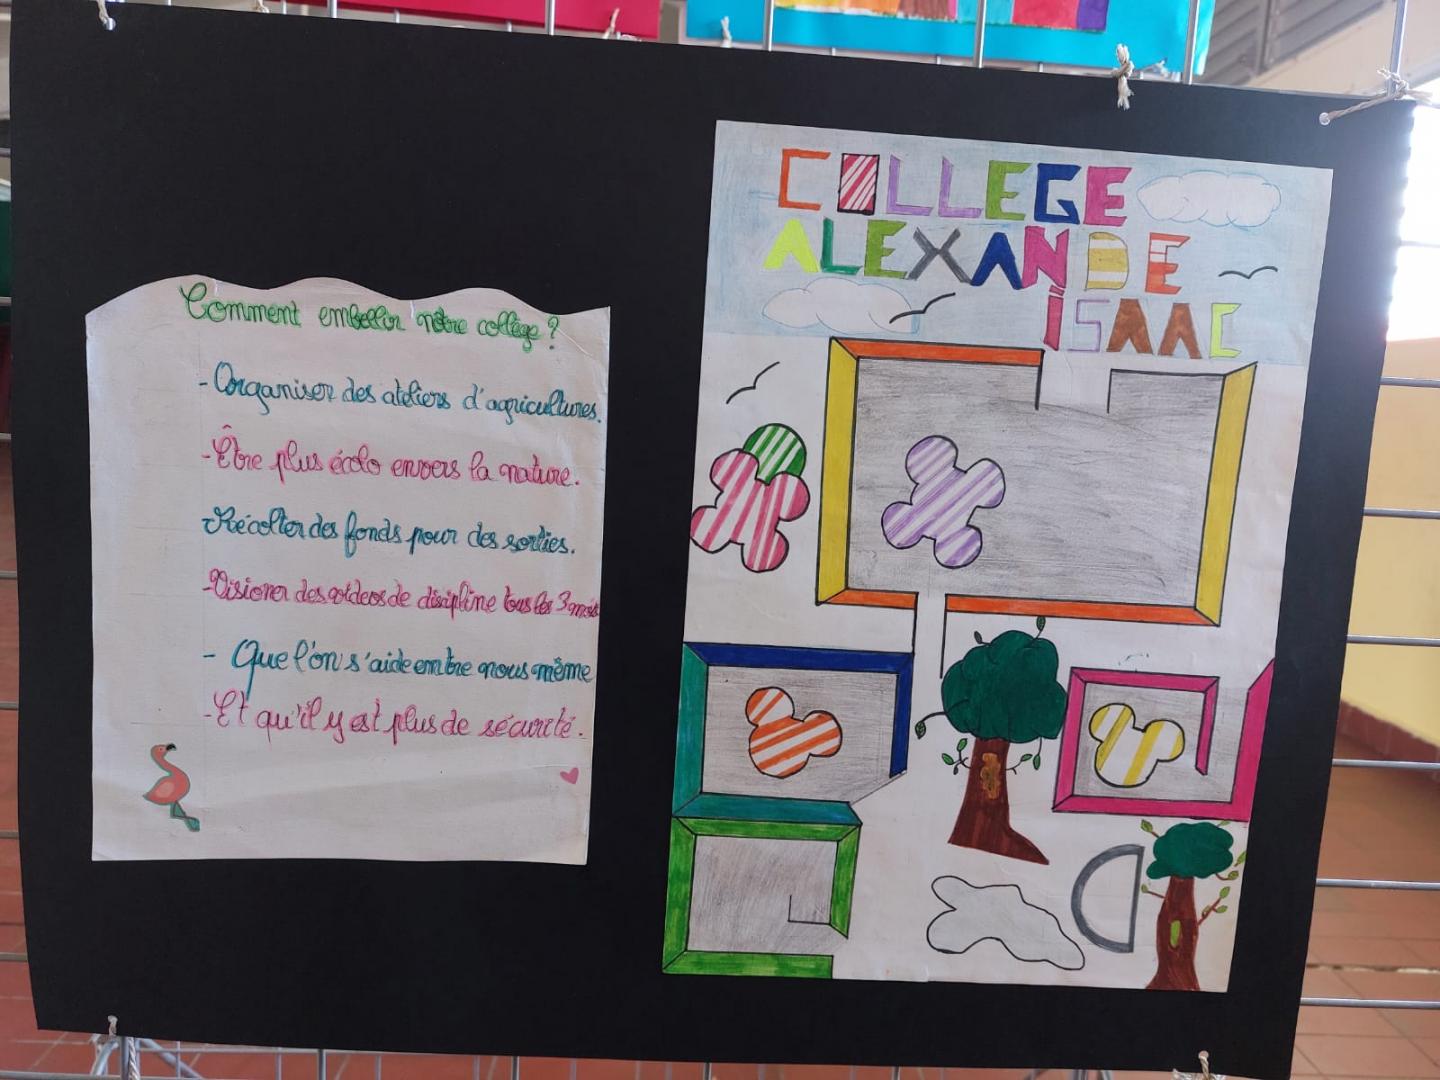 Comment embellir nôtre collège ?
- Organiser des ateliers d'agricultures.
- Être plus écolo envers la nature.
- Récolter des fonds pour des sorties.
- Visioner des de discipline tous les 3 mois
- Que l'on s'aide entre nous même
- Et qu'il y est plus de sécurité.
COLLEGE
ALEXANDE
iSAAC